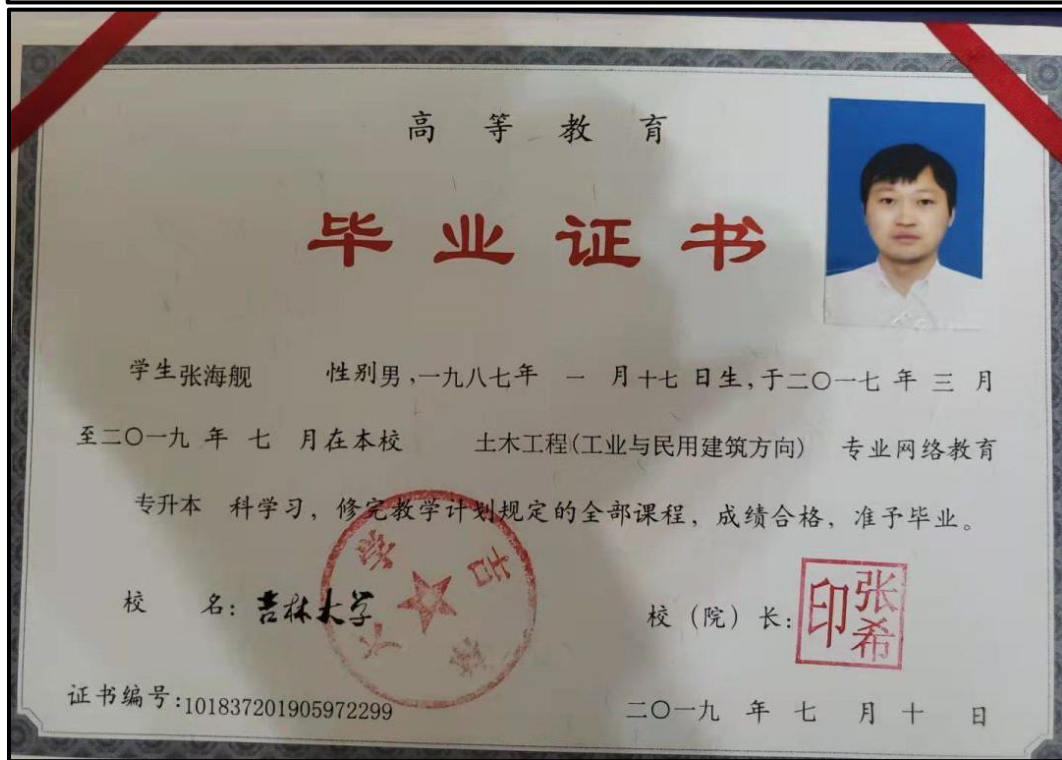 高等教育
毕业证书
学生张海舰 性别男,一九八七年 一 月十七日生,于二〇一七年三月
至二〇一九年七月在本校 土木工程(工业与民用建筑方向) 专业网络教育
专升本 科学习，修完教学计划规定的全部课程，成绩合格，准予毕业。
校 名：吉林大学 校（院）长：张希印
吉林大学
证书编号:101837201905972299 二〇一九年七月十日